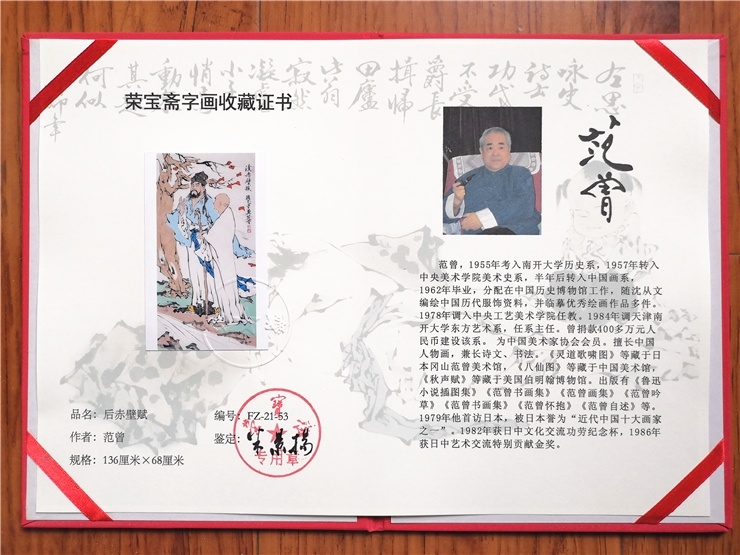 荣宝斋字画收藏证书
后赤壁赋
品名：后赤壁赋
编号：FZ-21-53
作者：范曾
鉴定：
规格：136厘米×68厘米
专用章
范曾
范曾，1955年考入南开大学历史系，1957年转入
中央美术学院美术史系，半年后转入中国画系，
1962年毕业，分配在中国历史博物馆工作，随沈从文
编绘中国历代服饰资料，并临摹优秀绘画作品多件。
1978年调入中央工艺美术学院任教。1984年调天津南
开大学东方艺术系，任系主任。曾捐款400多万元人
民币建设该系。 为中国美术家协会会员。擅长中国
人物画，兼长诗文、书法。《灵道歌啸图》等藏于日
本冈山范曾美术馆，《八仙图》等藏于中国美术馆，
《秋声赋》等藏于美国伯明翰博物馆。出版有《鲁迅
小说插图集》《范曾书画集》《范曾画集》《范曾吟
草》《范曾书画集》《范曾怀抱》《范曾自述》等。
1979年他首访日本，被日本誉为“近代中国十大画家
之一”。1982年获日中文化交流功劳纪念杯，1986年
获日中艺术交流特别贡献金奖。